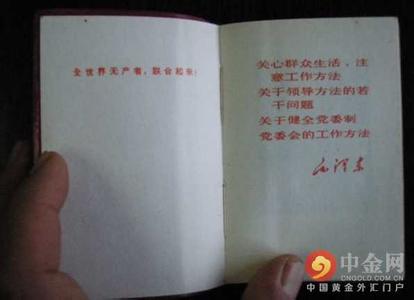 全世界无产者，联合起来！
关心群众生活，注
意工作方法
关于领导方法的若
干问题
关于健全党委制
党委会的工作方法
毛泽东
中金网
CNGOLD.COM.CN
中国黄金外汇门户